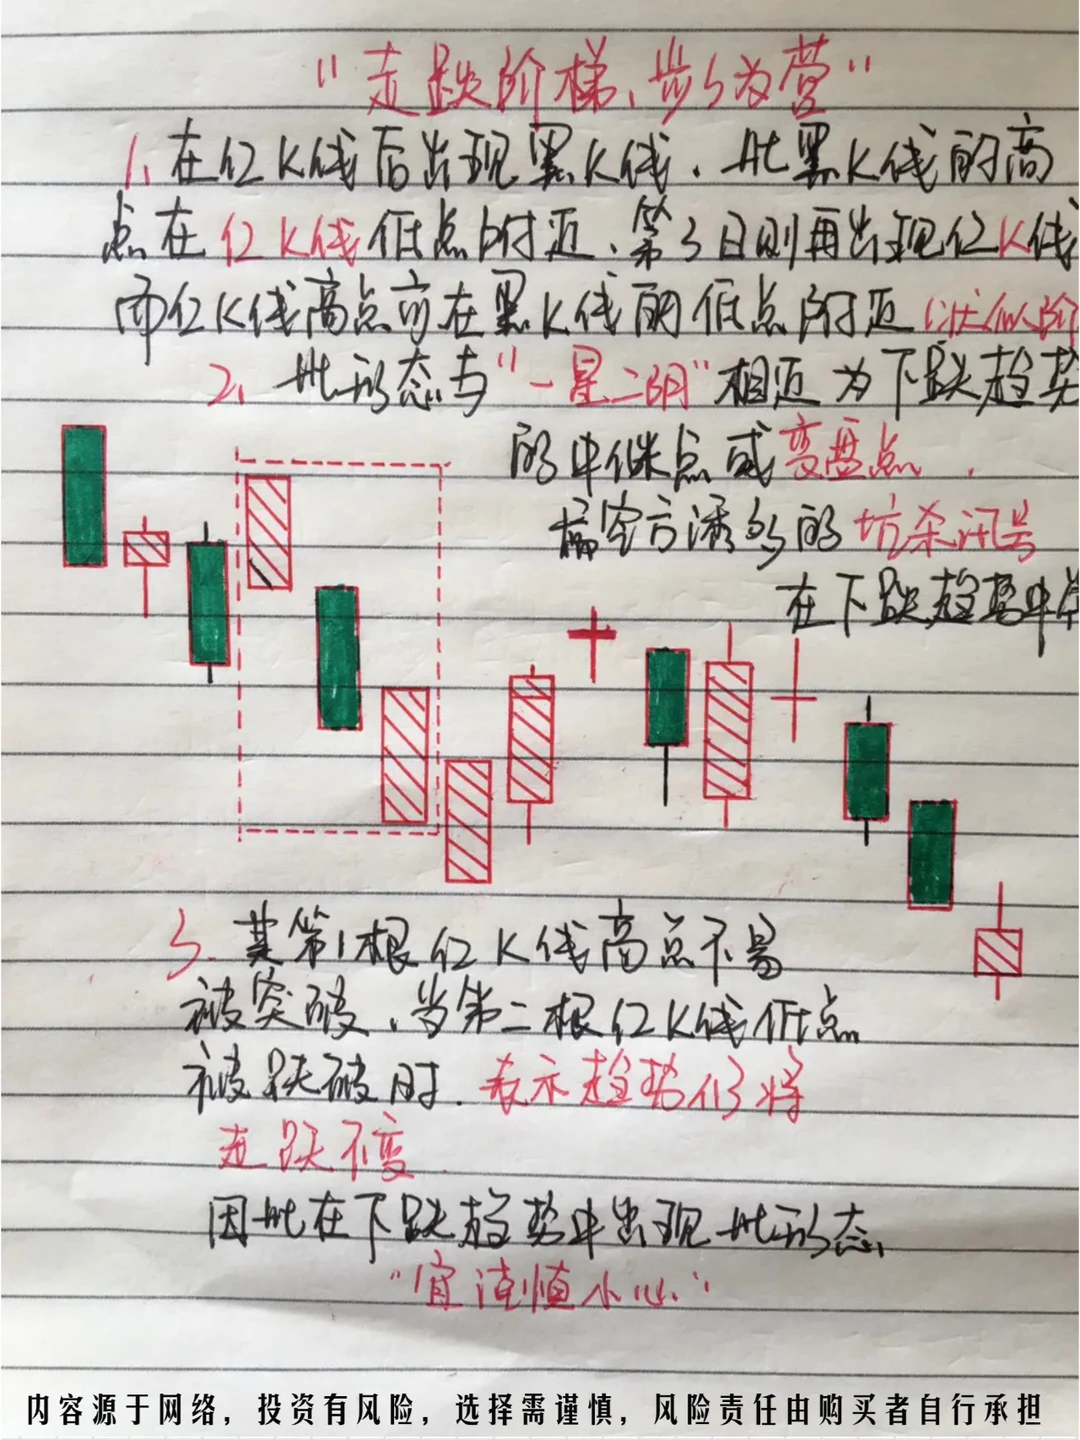 "走跌阶梯、步步为营"
1、在红K线后出现黑K线、此黑K线的高
点在红K线低点附近、第3日则再出现红K线
而红K线高点亦在黑K线的低点附近(状似阶
2、此形态与"一星二阴"相近为下跌趋势
的中继点或变盘点、
属空方诱多的坑杀讯号
在下跌趋势中
3、其第1根红K线高点不易
被突破、当第二根红K线低点
被跌破时、表示趋势仍将
走跌不变、
因此在下跌趋势中出现此形态
"宜谨慎小心"
内容源于网络，投资有风险，选择需谨慎，风险责任由购买者自行承担